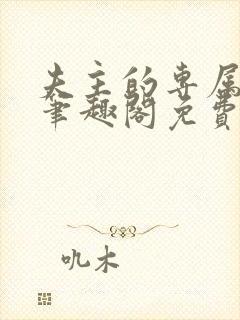 夫主的专属
笔趣阁免费
吼木